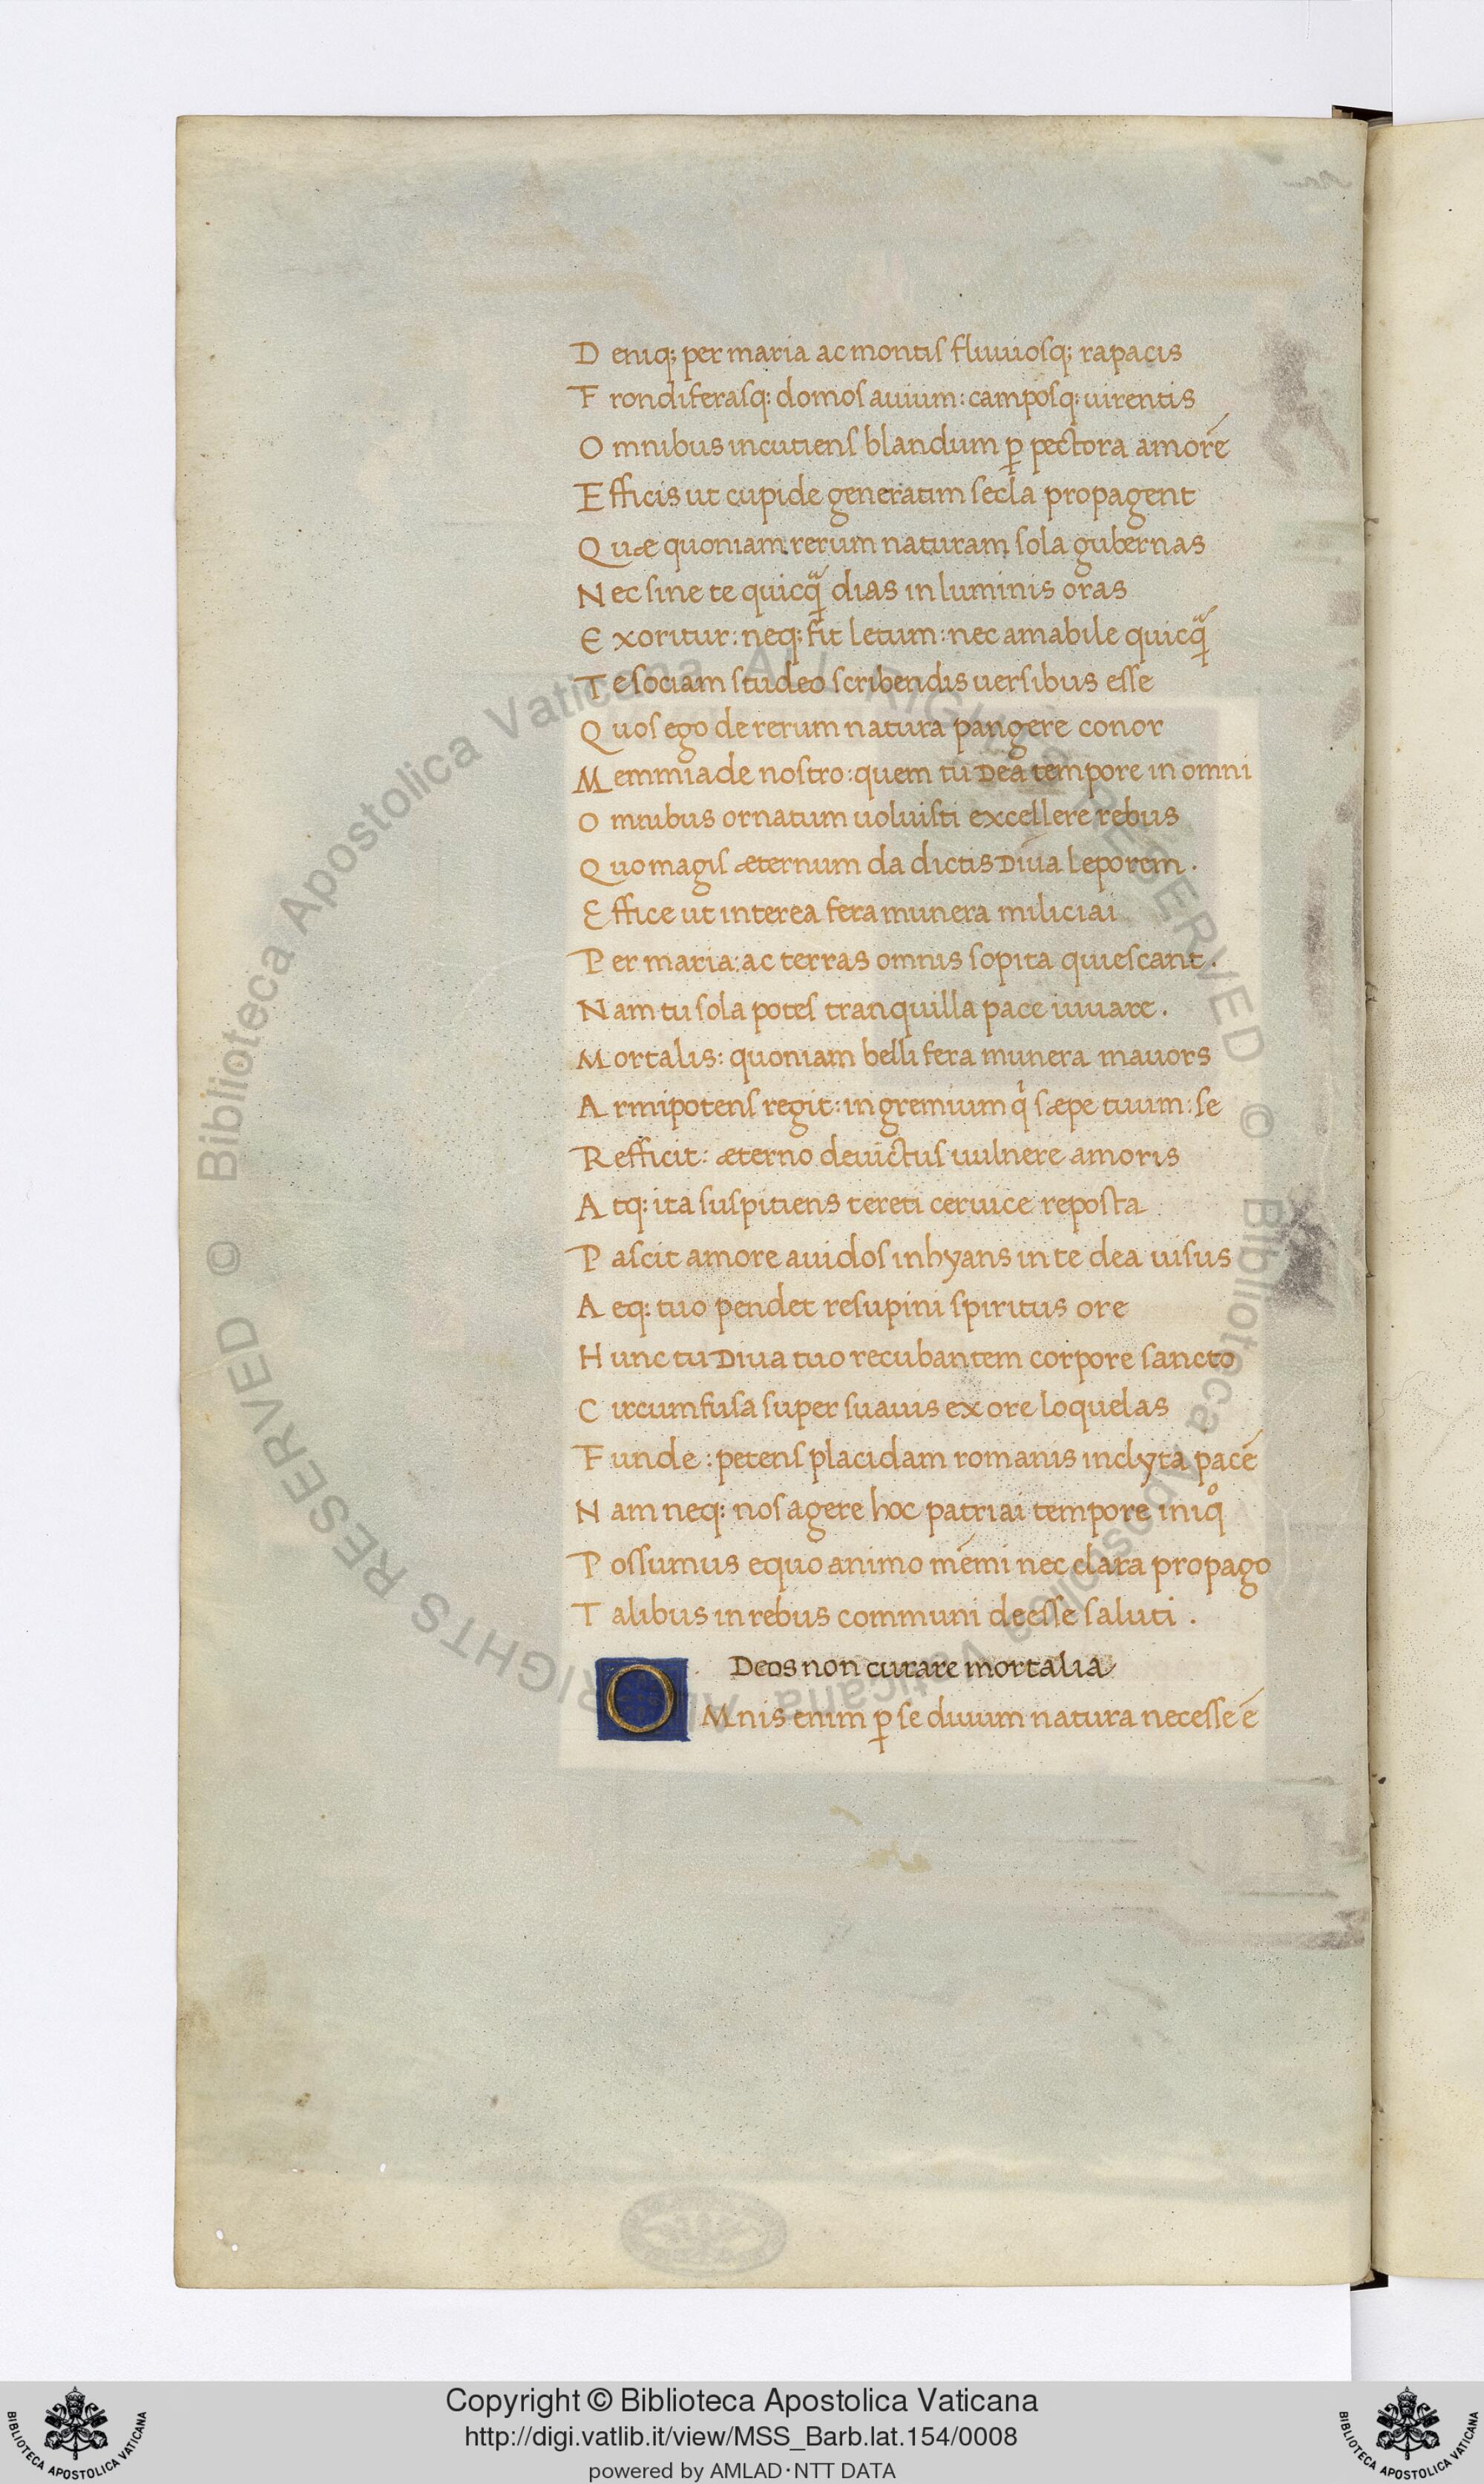 Deniq; per maria ac montis fluuiosq; rapacis
Frondiferasq: domos auium: camposq: uirentis
Omnibus incutiens blandum ꝑ pectora amorē
Efficis ut cupide generatim secla propagent
Quæ quoniam rerum naturam sola gubernas
Nec sine te quicq̃ dias in luminis oras
Exoritur: neq; fit letum: nec amabile quicq̃
Te sociam studeo scribendis uersibus esse
Quos ego de rerum natura pangere conor
Memmiade nostro: quem tu Dea tempore in omni
Omnibus ornatum uoluisti excellere rebus
Quo magis æternum da dictis Diua leporem.
Effice ut interea fera munera miliciai
Per maria: ac terras omnis sopita quiescant.
Nam tu sola potes tranquilla pace iuuare.
Mortalis: quoniam belli fera munera mauors
Armipotens regit: in gremium qͥ sæpe tuum: se
Refficit: æterno deuictus uulnere amoris
Atq: ita suspitiens tereti ceruice reposta
Pascit amore auidos inhyans in te dea uisus
Aeq: tuo pendet resupini spiritus ore
Hunc tu Diua tuo recubantem corpore sancto
Circumfusa super suauis ex ore loquelas
Funde: petens placidam romanis inclyta pacē
Nam neq: nos agere hoc patriai tempore iniqͦ
Possumus equo animo mēmi nec clara propago
Talibus in rebus communi deesse saluti.
Deos non curare mortalia
OMnis enim ꝑ se diuum natura necesse ē
© Biblioteca Apostolica Vaticana ALL RIGHTS RESERVED © Biblioteca Apostolica Vaticana ALL RIGHTS RESERVED
Copyright © Biblioteca Apostolica Vaticana
http://digi.vatlib.it/view/MSS_Barb.lat.154/0008
powered by AMLAD·NTT DATA
BIBLIOTECA APOSTOLICA VATICANA
BIBLIOTECA APOSTOLICA VATICANA